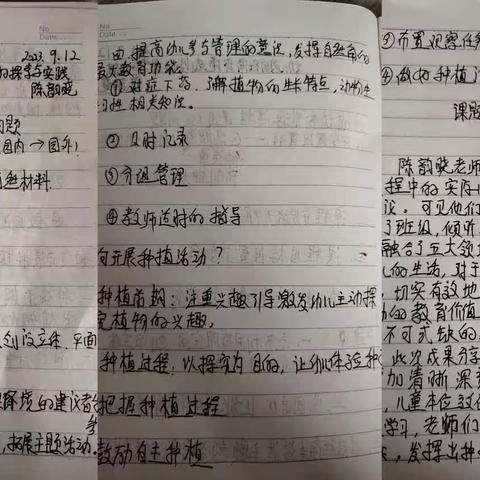 2023.9.12
的探索与实践
陈韵晓
问题
国内→国外)
自然材料.
创设立体、平面
环境的建议者
拓展主题活动.
No.
Date.
四、提高幼儿参与管理的意识,发挥自然角的
最大教育功能.
①对症下药.了解植物的生长特点,动物生
习性相关知识.
②及时记录
③分组管理
④教师适时的指导
何开展种植活动?
种植前期:注重兴趣引导激发幼儿主动探
究植物的兴趣,
种植过程:以探究为目的,让幼儿体验种
把握种植过程
鼓励自主种植
No.
Date.
③布置观察任务
④做好种植
课题
陈韵晓老师
程中的实际
议。可见他们
了班级,倾听
融合了五大领
儿的生活,对于
切实有效地
的教育价值
不可或缺的
此次成果分享
加清晰深
,儿童本位
学习,老师们
,发挥出种